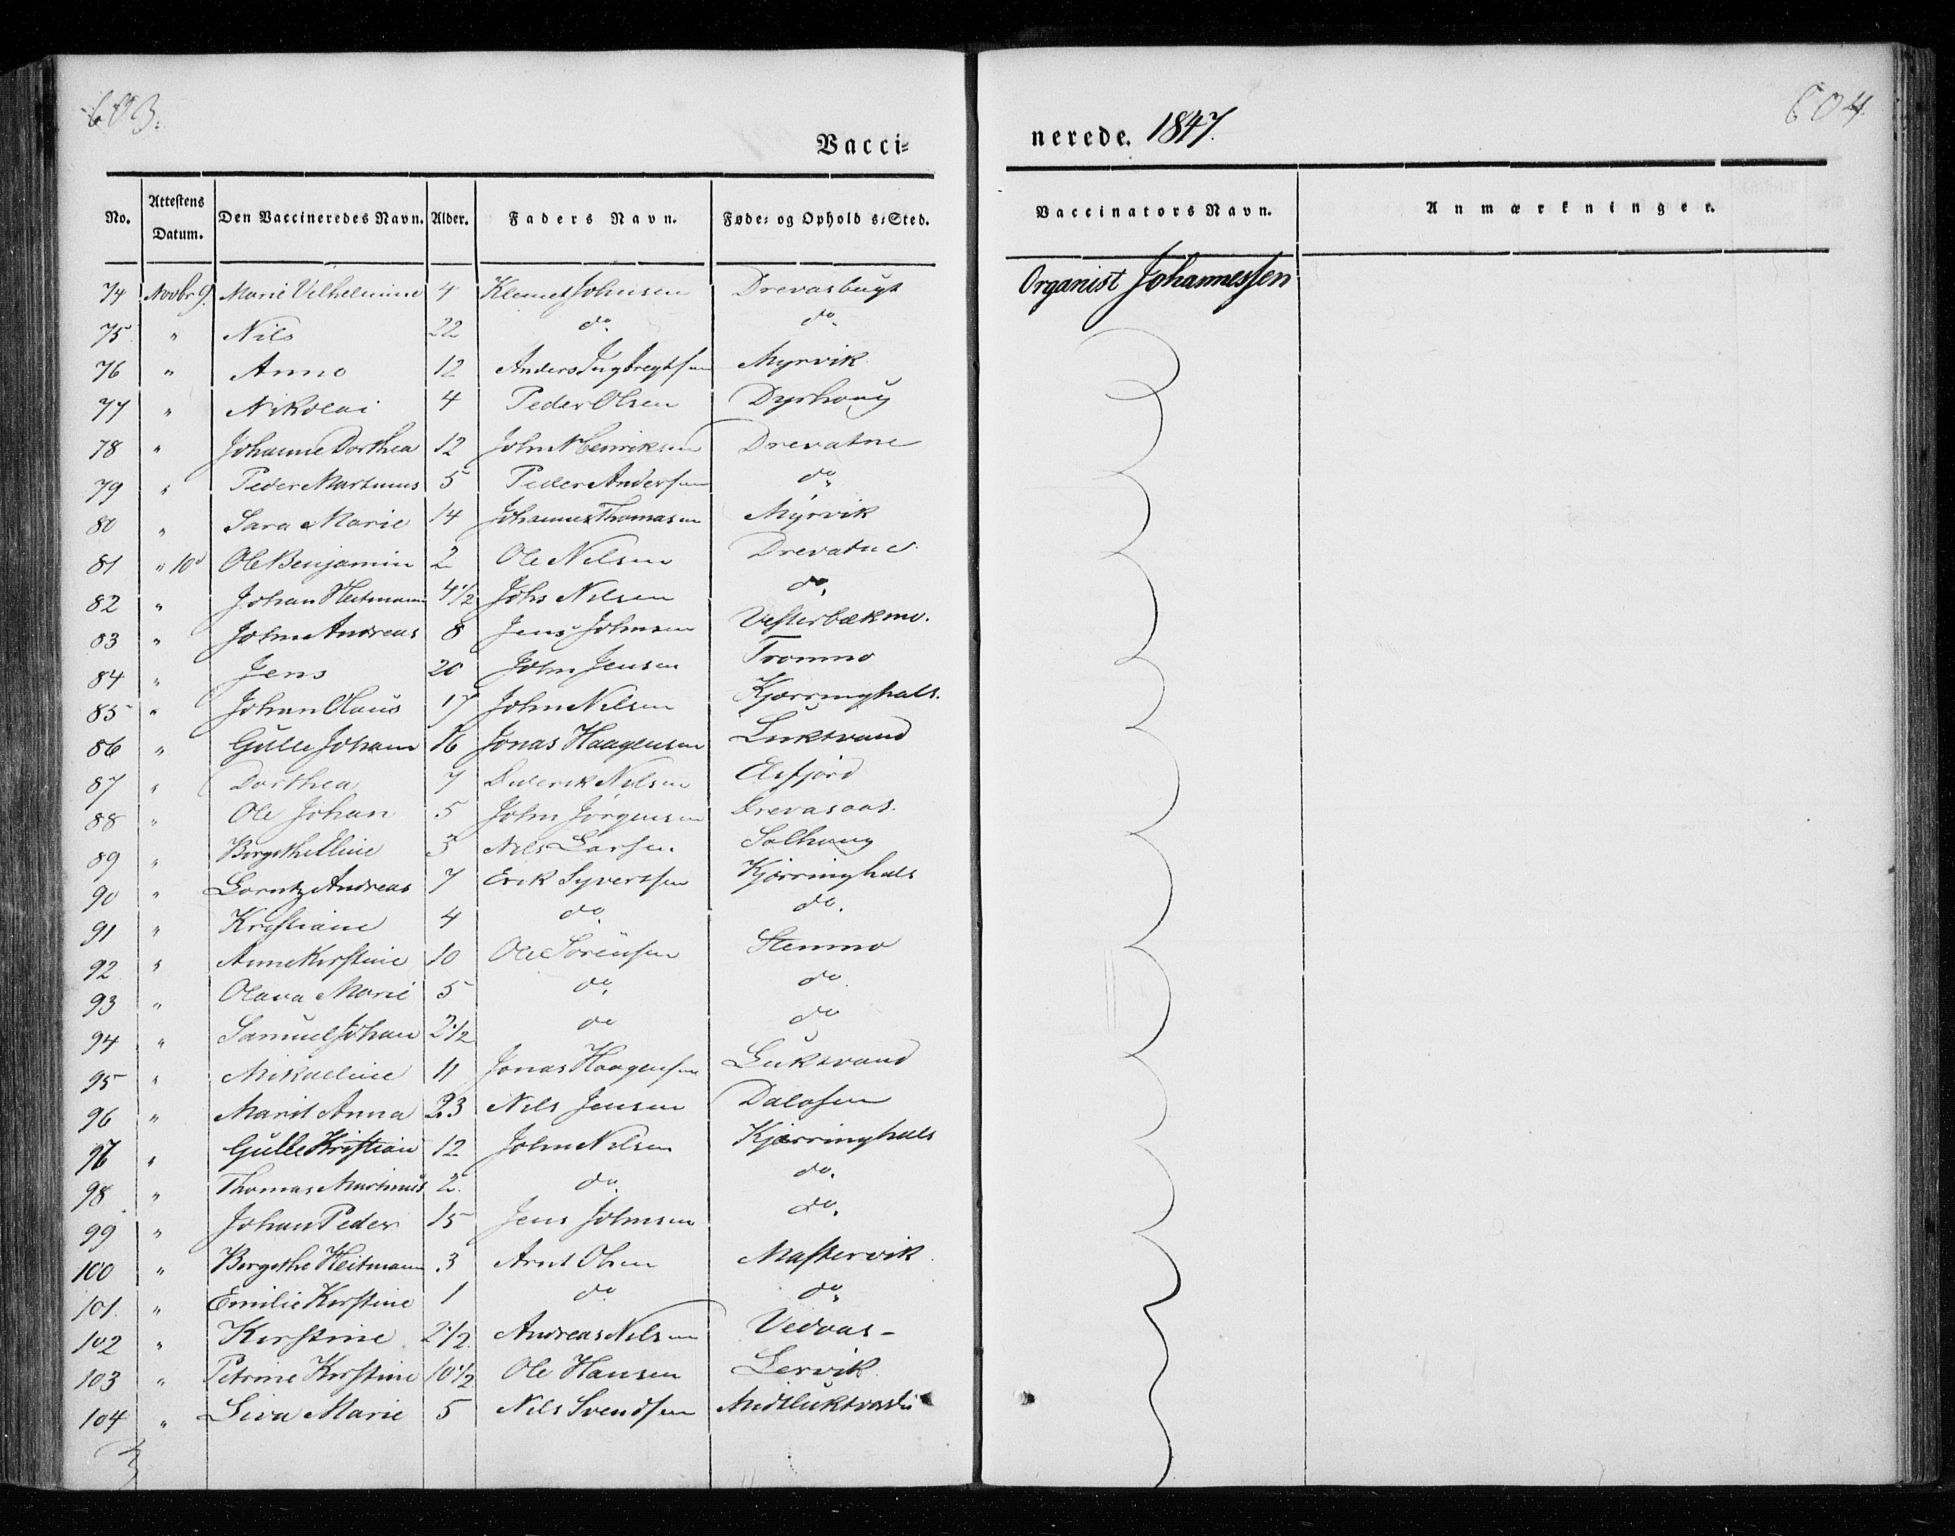 603.
604.
Vacci-
nerede. 1847.
No. Attestens Datum. Den Vaccineredes Navn. Alder. Faders Navn. Føde- og Opholds-Sted.
Vaccinators Navn. Anmærkninger.
74 Novbr 9. Marie Vilhelmine 4 Klemet Johnsen Drevasbugt Organist Johannessen
75 " Nils 22 do. do.
76 " Anne 12 Anders Ingbregtsen Myrvik
77 " Nikolai 4 Peder Olsen Dyrhoug
78 " Johanne Dorthea 12 John Henriksen Drevatne
79 " Peder Martinus 5 Peder Andersen do.
80 " Sara Marie 14 Johannes Thomasen Myrvik
81 " 10d Ole Benjamin 2 Ole Nilsen Drevatne
82 " Johan Heitmann 4 1/2 Johs Nilsen do.
83 " John Andreas 8 Jens Johnsen Vesterbækmo.
84 " Jens 20 John Jensen Trommo
85 " Johan Olaus 17 John Nilsen Kjærringhals.
86 " Gulle Johan 16 Jonas Haagensen Luktvand
87 " Dorthea 7 Diderik Nilsen Elsfjord
88 " Ole Johan 5 John Jørgensen Drevasaas.
89 " Bergithe Eline 3 Nils Larsen Solhoug
90 " Lorntz Andreas 7 Erik Syvertsen Kjærringhals
91 " Kristiane 4 do. do.
92 " Anne Kirstine 10 Ole Sørensen Stenmo
93 " Olava Marie 5 do. do.
94 " Samuel Johan 2 1/2 do do
95 " Mikaeline 11 Jonas Haagensen Luktvand
96 " Marit Anna 23 Nils Jensen Dalosen
97 " Gulle Kristian 12 John Nilsen Kjærringhals
98 " Thomas Martinus 2. do. do.
99 " Johan Peder 15 Jens Johnsen do.
100 " Bergithe Heitmann 3 Arnt Olsen Mastervik
101. " Emilie Kirstine 1 do. do.
102 " Kirstine 2 1/2 Andreas Nilsen Vedaas-
103 " Petrine Kirstine 10 1/2 Ole Hansen Lervik
104 " Siva Marie 5 Nils Svendsen